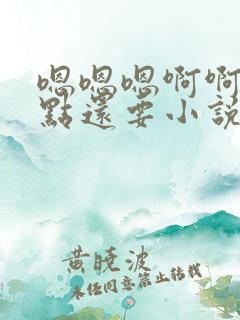 嗯嗯嗯啊啊
點還要小說
黄晓波
未经同意禁止转载